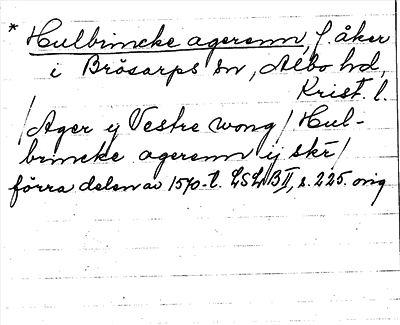 * Hulbrincke agerenn, f. åker
i Brösarps sn, Albo hd,
Krist. l.
/Ager ij Vestre wong/ Hul-
brincke agerenn ij skr/
förra delen av 1570-t. LSLB II, s. 225. orig